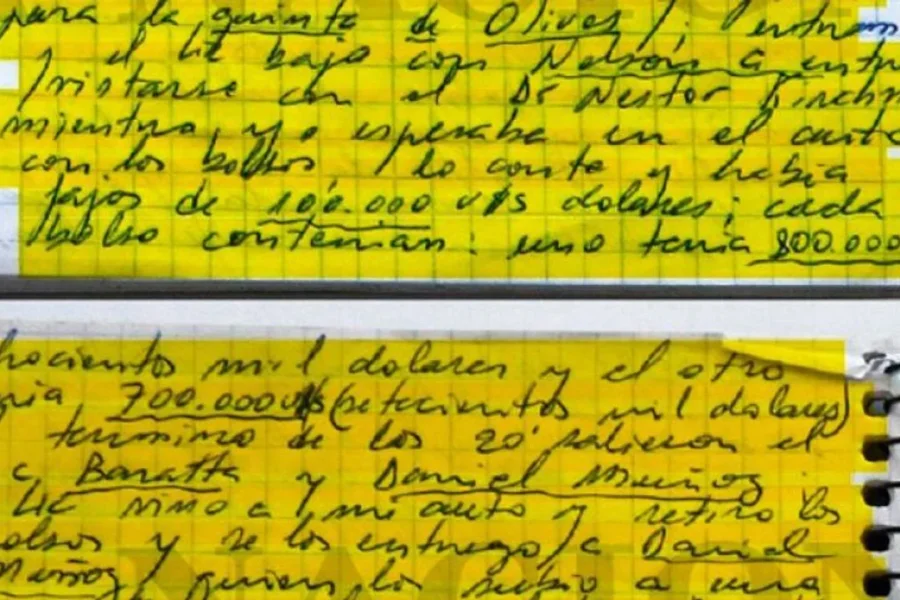 para la quinta de Olivos/; entram
y el Lic bajo con Nelson a entr
/vistarse con el Dr Nestor Kirchn
mientras, yo esperaba en el auto
con los bolsos /lo conte y habia
fajos de 100.000 u$s dolares; cada
bolso contenian: uno tenia 800.000
hocientos mil dolares y el otro
nia 700.000 u$s (setecientos mil dolares)
termino de los 20' salieron el
c, Baratta y Daniel Muñoz
Lic vino a/ mi auto y retiro los
olsos y se los entrego/a Daniel
Muñoz/ quien los subio a una
NACION